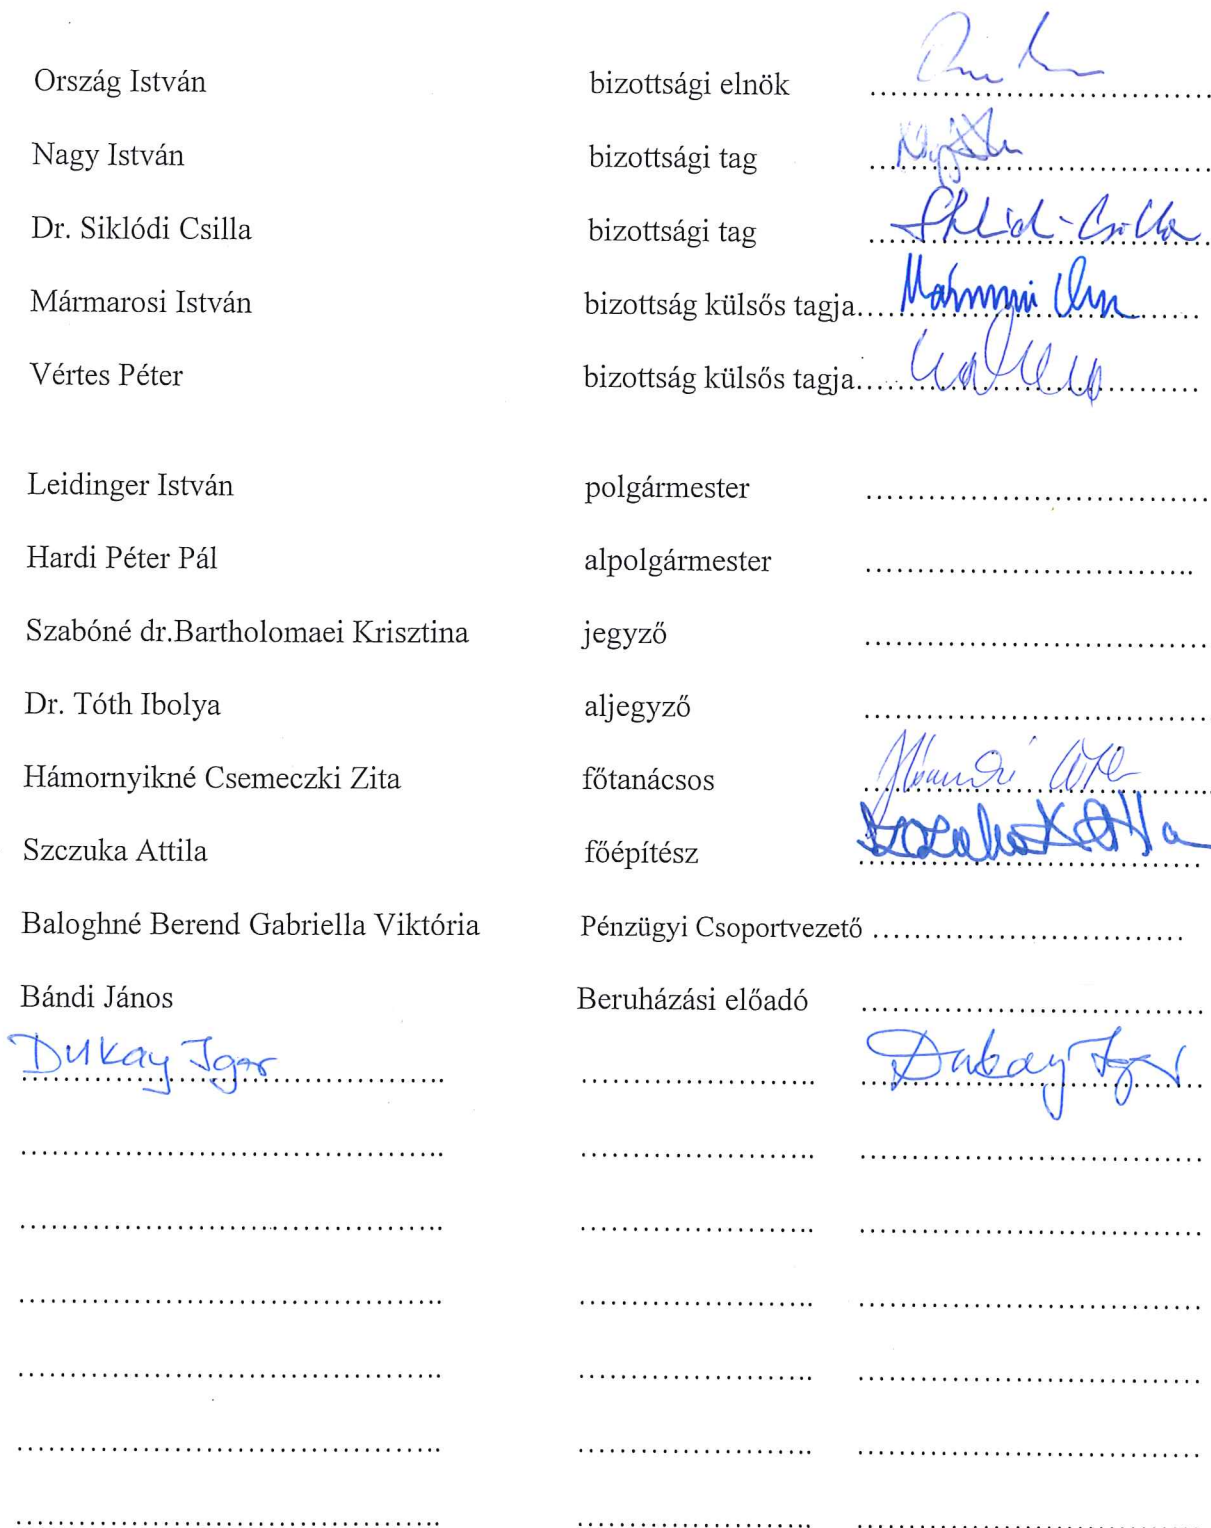 Ország István bizottsági elnök ................................
Nagy István bizottsági tag ................................
Dr. Siklódi Csilla bizottsági tag ................................
Mármarosi István bizottság külsős tagja................................
Vértes Péter bizottság külsős tagja................................
Leidinger István polgármester ................................
Hardi Péter Pál alpolgármester ................................
Szabóné dr.Bartholomaei Krisztina jegyző ................................
Dr. Tóth Ibolya aljegyző ................................
Hámornyikné Csemeczki Zita főtanácsos ................................
Szczuka Attila főépítész ................................
Baloghné Berend Gabriella Viktória Pénzügyi Csoportvezető ................................
Bándi János Beruházási előadó ................................
Dukay Igor Dukay Igor